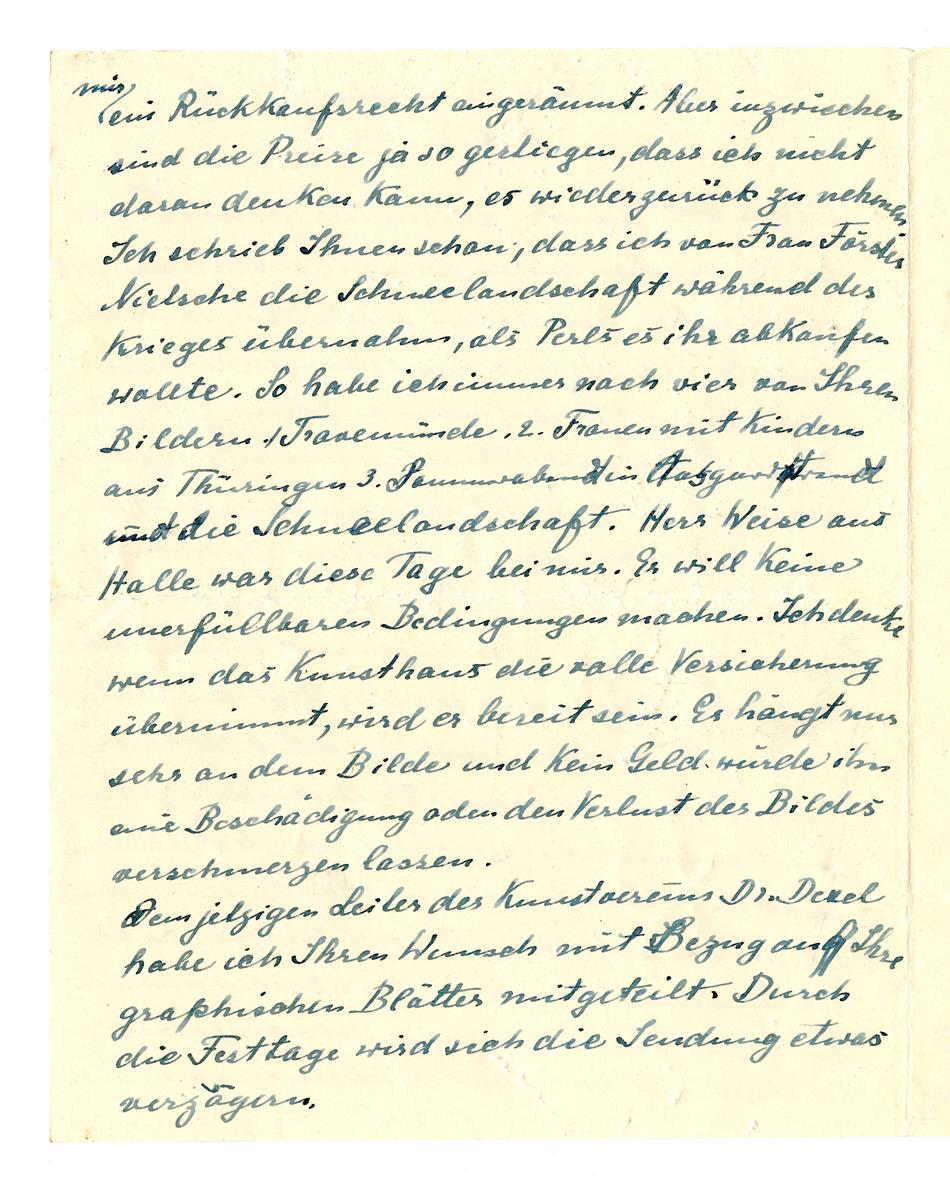 mir
ein Rückkaufsrecht eingeräumt. Aber inzwischen
sind die Preise ja so gestiegen, dass ich nicht
daran denken kann, es wiederzurück zu nehmen
Ich schrieb Ihnen schon, dass ich von Frau Förster
Nietsche die Schneelandschaft während des
Krieges übernahm, als Perls es ihr abkaufen
wollte. So habe ich immer noch vier von Ihren
Bildern. 1 Travemünde. 2. Frauen mit Kindern
aus Thüringen 3. in
und die Schneelandschaft. Herr Weise aus
Halle war diese Tage bei mir. Er will keine
unerfüllbaren Bedingungen machen. Ich denke
wenn das Kunsthaus die volle Versicherung
übernimmt, wird er bereit sein. Er hängt nur
sehr an dem Bilde und kein Geld würde ihn
eine Beschädigung oder den Verlust des Bildes
verschmerzen lassen.
Dem jetzigen Leiter des Kunstvereins Dr. Dexel
habe ich Ihren Wunsch mit Bezug auf Ihre
graphischen Blätter mitgeteilt. Durch
die Festtage wird sich die Sendung etwas
verzögern.